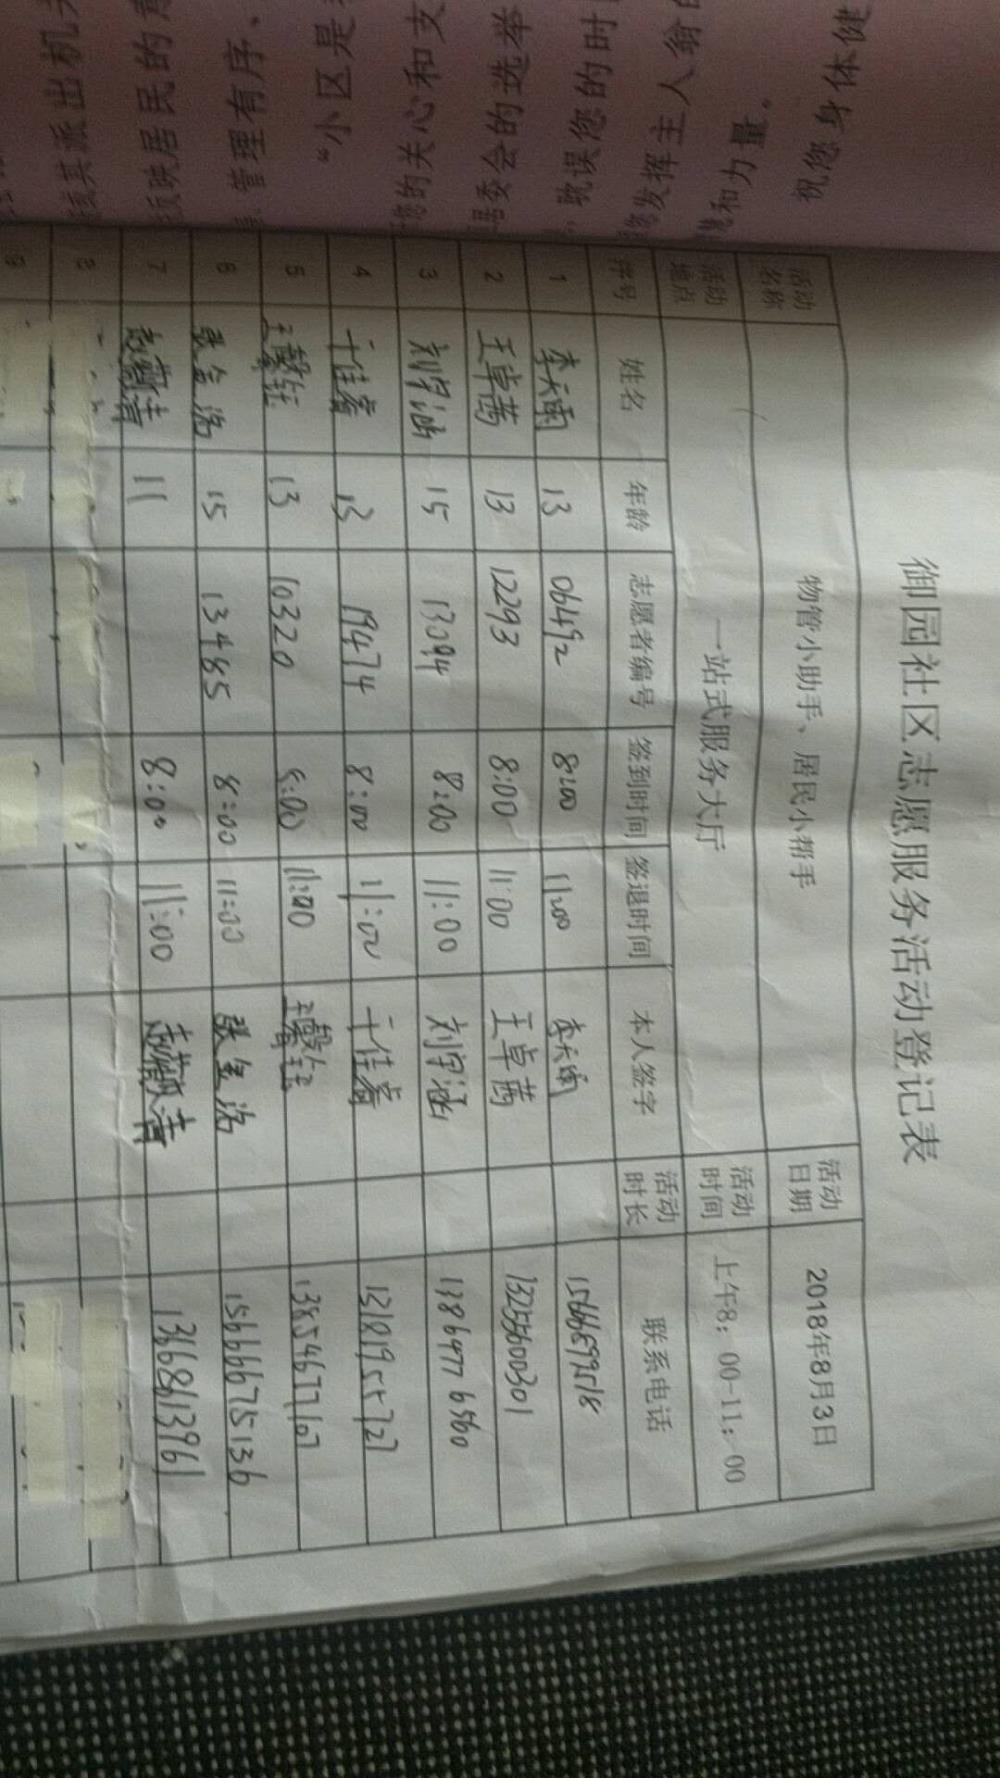 祝您身体健
和力量。
发挥主人翁
耽误您的时
居委会的选举
您的关心和支
“小区是
管理有序、
反映居民的
其派出机关
御园社区志愿服务活动登记表
活动名称 物管小助手、居民小帮手 活动日期 2018年8月3日
活动地点 一站式服务大厅 活动时间 上午8：00-11：00
序号 姓名 年龄 志愿者编号 签到时间 签退时间 本人签字 活动时长 联系电话
1 李天雨 13 06492 8:00 11:00 李天雨
2 王卓茜 13 12293 8:00 11:00 王卓茜 13255600301
3 刘宇涵 15 13094 8:00 11:00 刘宇涵 13864776560
4 于佳睿 13 19474 8:00 11:00 于佳睿 13181955727
5 13 10320 8:00 11:00 13854677167
6 张金洛 15 13485 8:00 11:00 张金洛 15666675136
7 11 8:00 11:00 13668613961
8
9